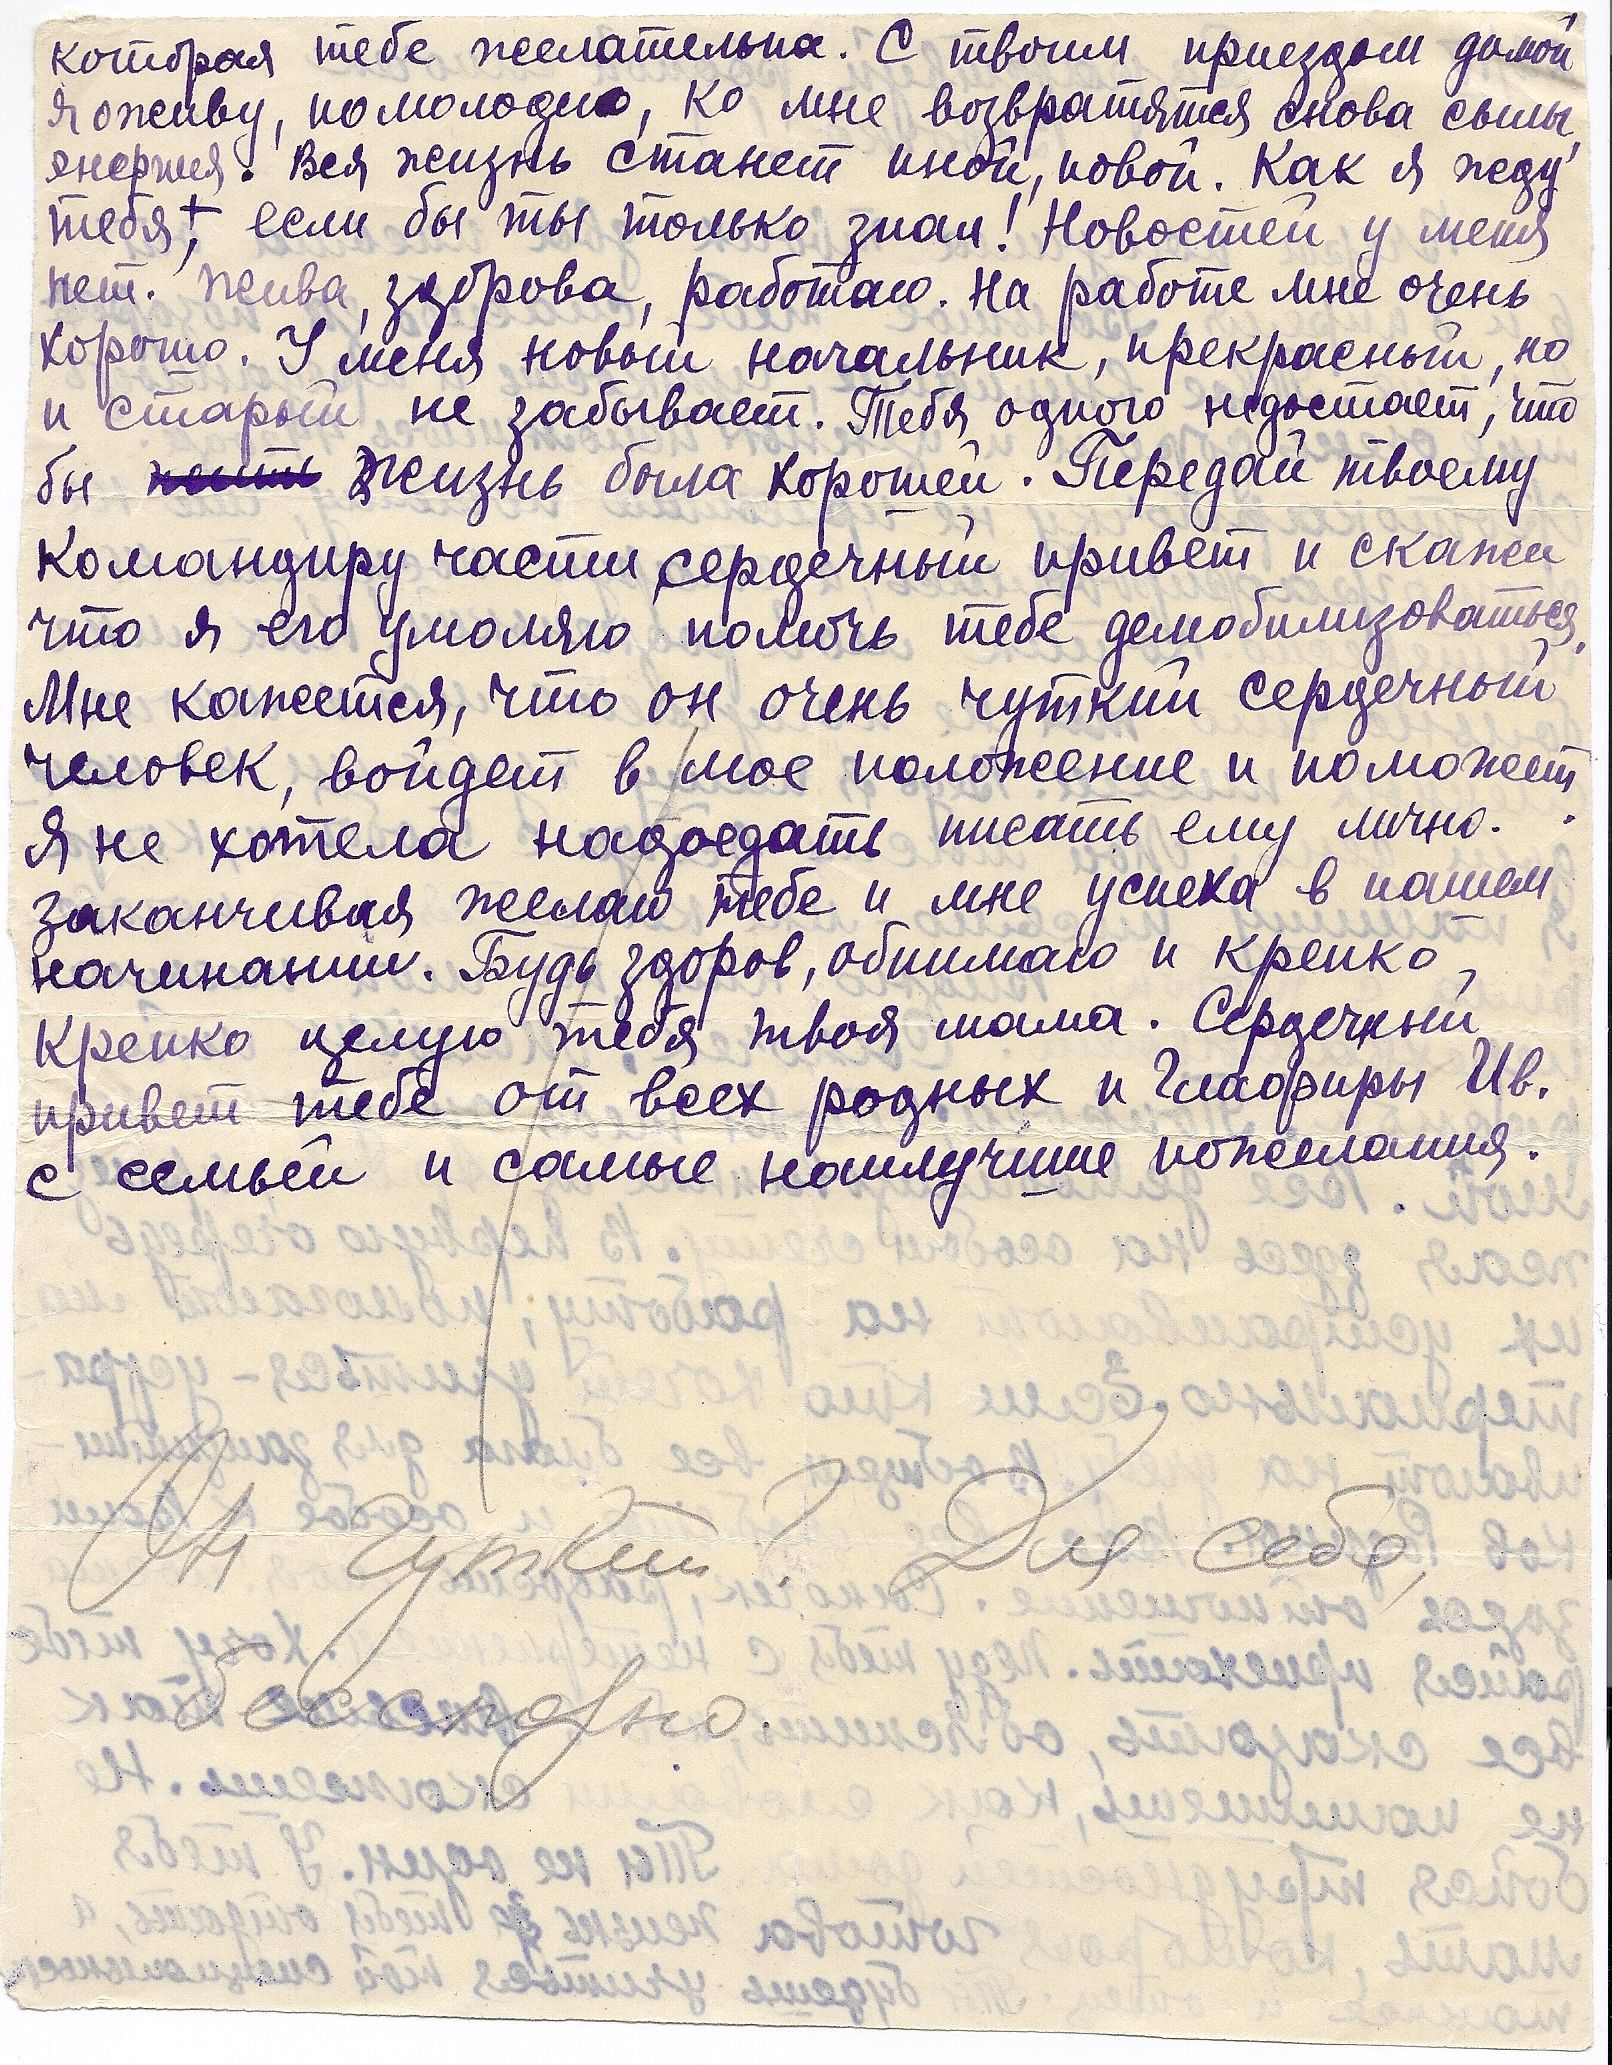 которая тебе желательна. С твоим приездом домой
я оживу, помолодею, ко мне возвратятся снова силы,
энергия. Вся жизнь станет иной, новой. Как я жду
тебя, если бы ты только знал! Новостей у меня
нет. Жива, здорова, работаю. На работе мне очень
хорошо. У меня новый начальник, прекрасный, но
и старый не забывает. Тебя одного недостает, что
бы жизнь была хорошей. Передай твоему
командиру части сердечный привет и скажи
что я его умоляю помочь тебе демобилизоваться.
Мне кажется, что он очень чуткий сердечный
человек, войдет в мое положение и поможет.
Я не хотела надоедать писать ему лично.
Заканчивая желаю тебе и мне успеха в нашем
начинании. Будь здоров, обнимаю и крепко,
крепко целую тебя твоя мама. Сердечный
привет тебе от всех родных и Глафиры Ив.
с семьей и самые наилучшие пожелания.
Он чуткий? Для себя,
бесспорно.